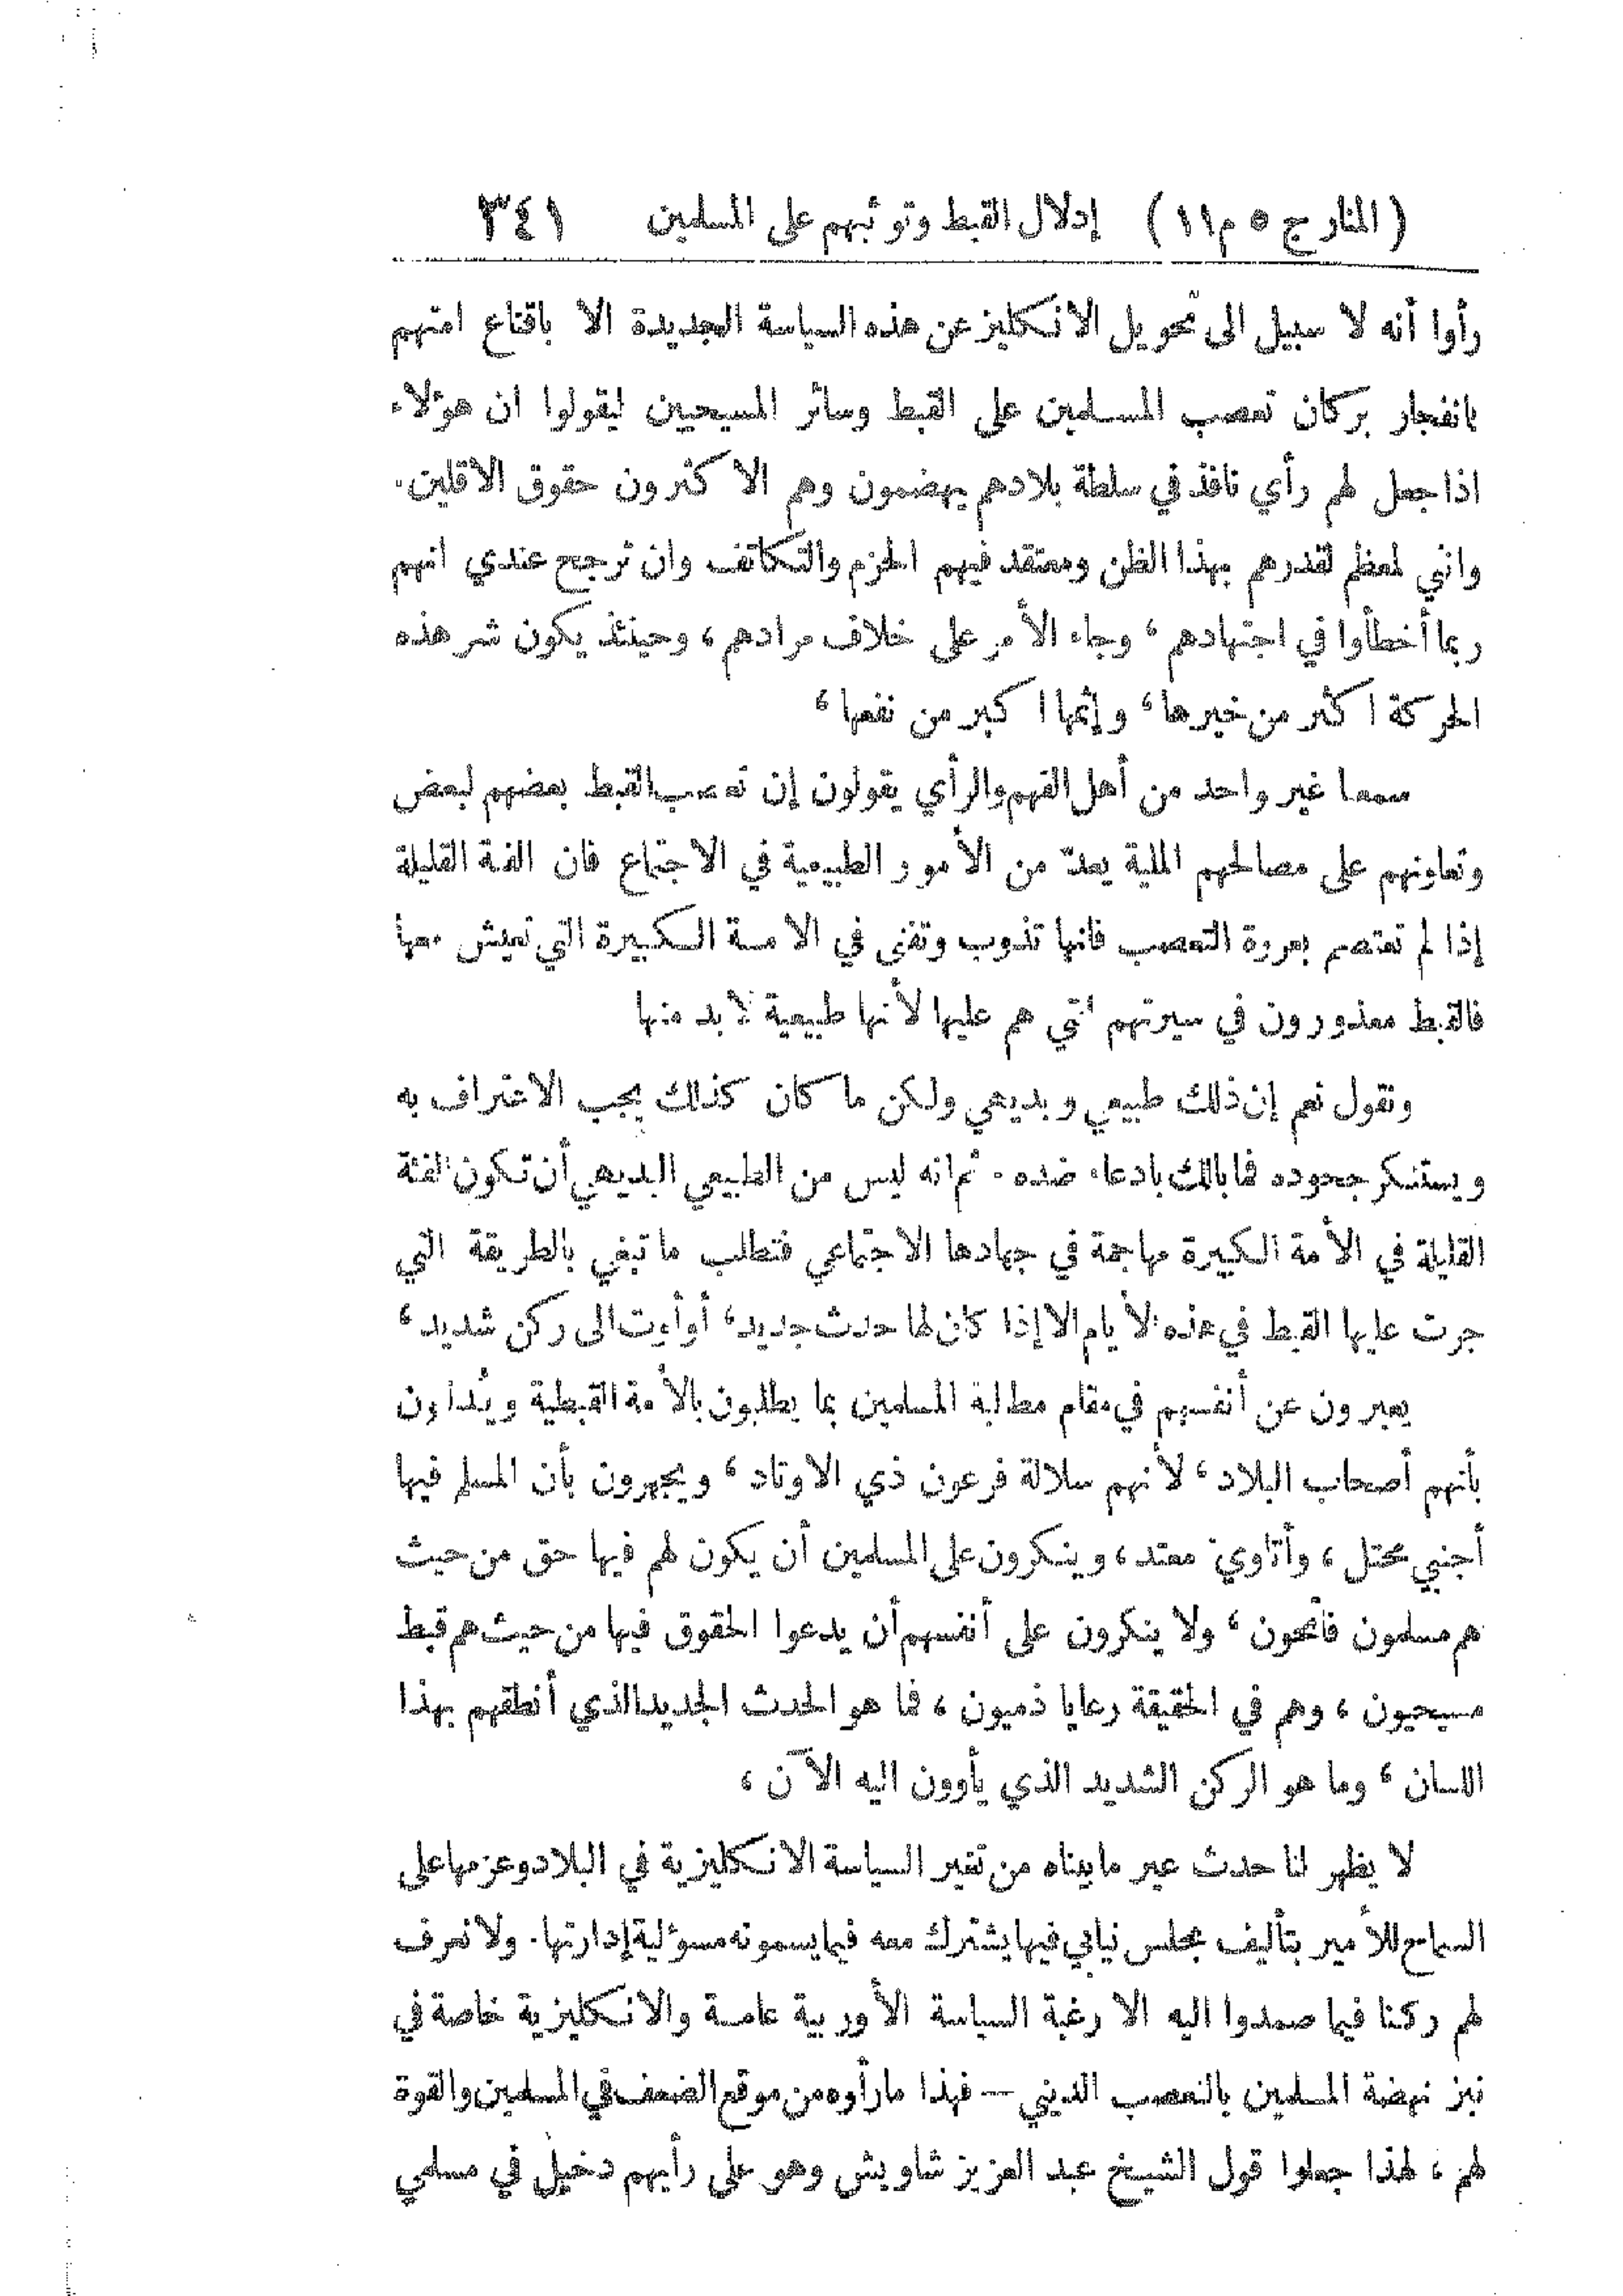 (المنار ج ٥ م ١١) إدلال القبط وتوثبهم على المسلمين ٣٤١
رأوا أنه لا سبيل الى تحويل الانكليز عن هذه السياسة الجديدة الا باقناع امتهم
بانفجار بركان تعصب المسلمين على القبط وسائر المسيحيين ليقولوا ان هؤلاء
اذا جعل لهم رأي نافذ في سلطة بلادهم يهضمون وهم الاكثرون حقوق الاقلين.
واني لمعظم لقدرهم بهذا الظن ومعتقد فيهم الحزم والتكاتف وان ترجح عندي انهم
ربما أخطأوا في اجتهادهم، وجاء الأمر على خلاف مرادهم، وحينئذ يكون شر هذه
الحركة اكثر من خيرها، وإثمها اكبر من نفعها،
سمعنا غير واحد من أهل الفهم والرأي يقولون إن تعصب القبط بعضهم لبعض
وتعاونهم على مصالحهم الملية يعدّ من الأمور الطبيعية في الاجتماع فان الفئة القليلة
إذا لم تعتصم بعروة التعصب فانها تذوب وتفنى في الامة الكبيرة التي تعيش معها
فالقبط معذورون في سيرتهم التي هم عليها لأنها طبيعية لا بد منها
ونقول نعم إن ذلك طبيعي وبديهي ولكن ما كان كذلك يجب الاعتراف به
ويستنكر جحوده فما بالك بادعاء ضده. ثم انه ليس من الطبيعي البديهي أن تكون الفئة
القليلة في الأمة الكبيرة مهاجمة في جهادها الاجتماعي فتطلب ما تبغي بالطريقة التي
جرت عليها القبط في هذه الأيام الا إذا كان لها حدث جديد، أو أوت الى ركن شديد،
يعبرون عن أنفسهم في مقام مطالبة المسلمين بما يطلبون بالأمة القبطية ويُدلون
بأنهم أصحاب البلاد، لأنهم سلالة فرعون ذي الاوتاد، ويجهرون بأن المسلم فيها
أجنبي محتل، وأتاوي معتد، وينكرون على المسلمين أن يكون لهم فيها حق من حيث
هم مسلمون فاتحون، ولا ينكرون على أنفسهم أن يدعوا الحقوق فيها من حيث هم قبط
مسيحيون، وهم في الحقيقة رعايا ذميون، فما هو الحدث الجديد الذي أنطقهم بهذا
اللسان، وما هو الركن الشديد الذي يأوون اليه الآن،
لا يظهر لنا حدث غير ما بيناه من تغير السياسة الانكليزية في البلاد وعزمها على
السماح للأمير بتأليف مجلس نيابي فيها يشترك معه فيما يسمونه مسؤلية إدارتها. ولا نعرف
لهم ركنا فيما صمدوا اليه الا رغبة السياسة الأوربية عامة والانكليزية خاصة في
نبز نهضة المسلمين بالتعصب الديني — فهذا ما رأوه من موقع الضعف في المسلمين والقوة
لهم، لهذا جعلوا قول الشيخ عبد العزيز شاويش وهو على رأيهم دخيل في مسلمي